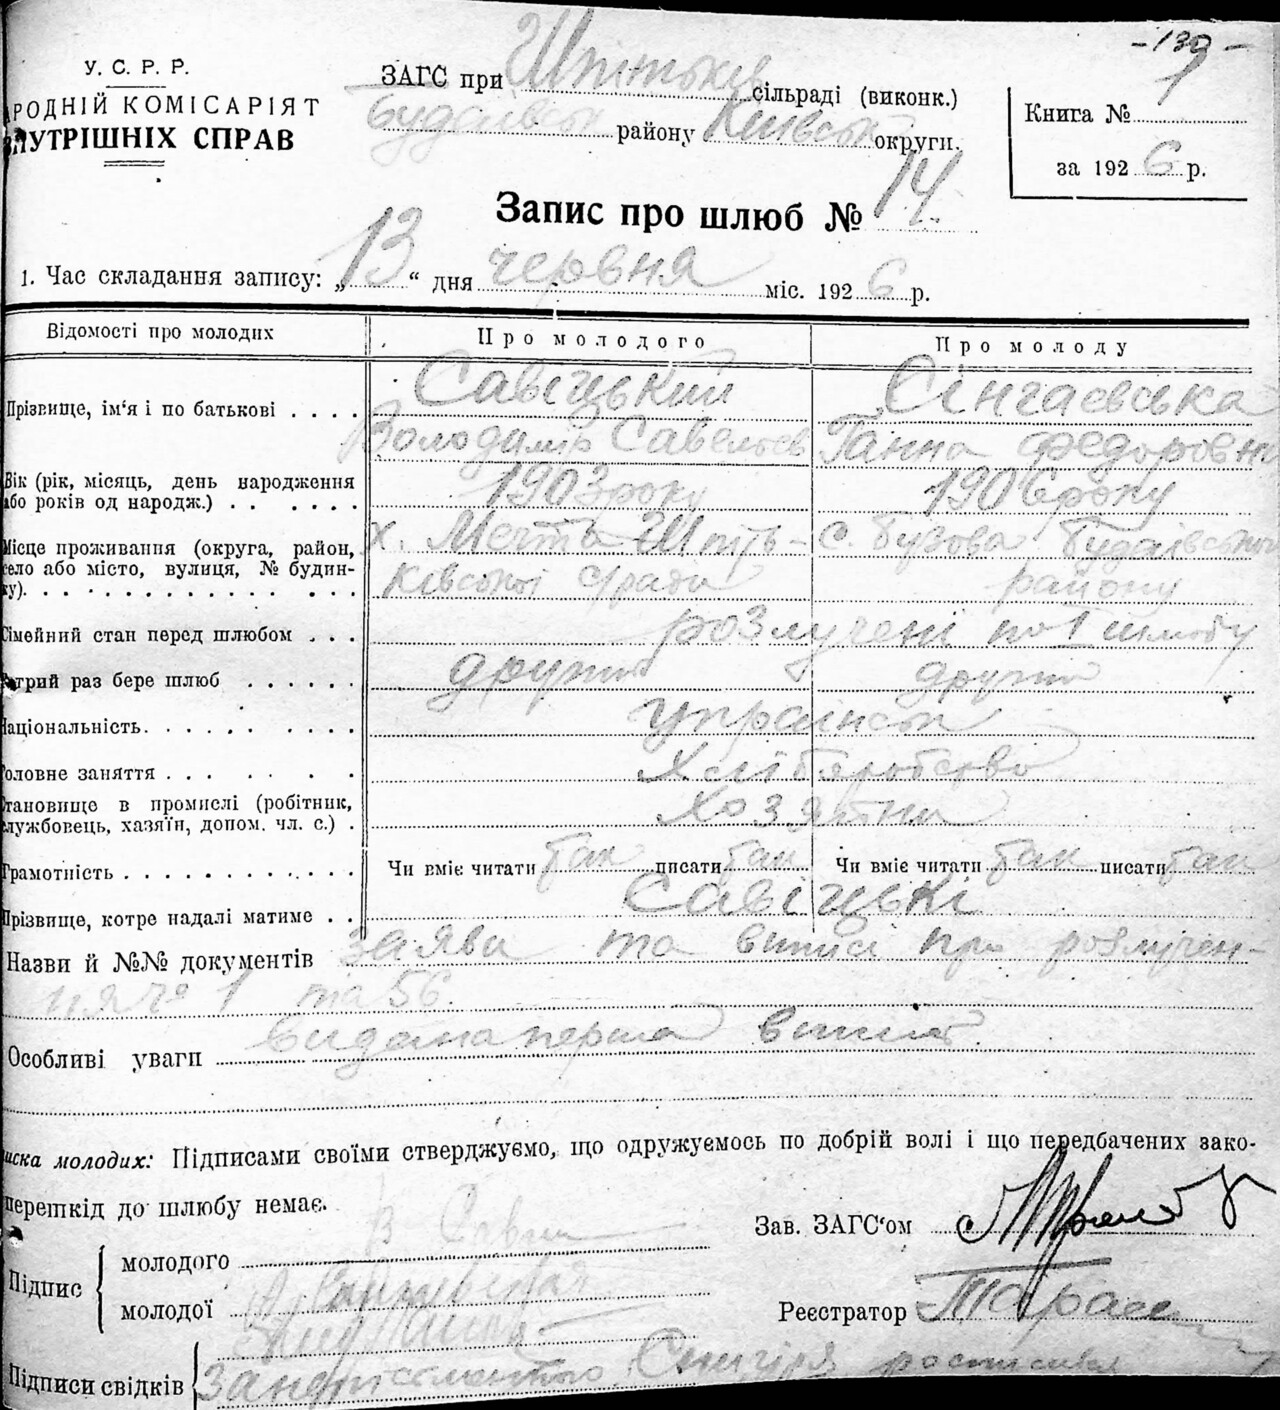 -130-
У. С. Р. Р.
РОДНІЙ КОМІСАРІЯТ
УТРІШНІХ СПРАВ
ЗАГС при Шпітьків сільраді (виконк.)
Будаївськ району Київськ округи.
Книга № 1
за 1926 р.
Запис про шлюб № 14
1. Час складання запису: „13“ дня червня міс. 1926 р.
Відомості про молодих
Про молодого
Про молоду
Прізвище, ім'я і по батькові . . . .
Савіцький
Володимір Савелєев
Сінгаєвська
Ганна Федоровна
Вік (рік, місяць, день народження
або років од народж.) . . . . . .
1903 року
1906 року
Місце проживання (округа, район,
село або місто, вулиця, № будин-
ку). . . . . . . . . . . . . . .
х. Мечта Шпіть-
ківської с/ради
с. Бузова Будаївського
району
Сімейний стан перед шлюбом . . .
розлучені по І шлюбу
Котрий раз бере шлюб . . . . . .
другий
другий
Національність. . . . . . . . . .
українськ
Головне заняття . . . . . . .
Хліборобство
Становище в промислі (робітник,
службовець, хазяїн, допом. чл. с.) .
Хозяїни
Грамотність . . . . . . . . . . . .
Чи вміє читати так писати так
Чи вміє читати так писати так
Прізвище, котре надалі матиме . .
Савіцькі
Назви й №№ документів заява та виписі про розлучен-
ня № 1 та 56
Особливі уваги видана перша випис
иска молодих: Підписами своїми стверджуємо, що одружуємось по добрій волі і що передбачених зако-
перешкід до шлюбу немає.
Зав. ЗАГС'ом
Підпис
молодого В Савиц
молодої
Реєстратор Тарас
Підписи свідків
За Снигіря росписався